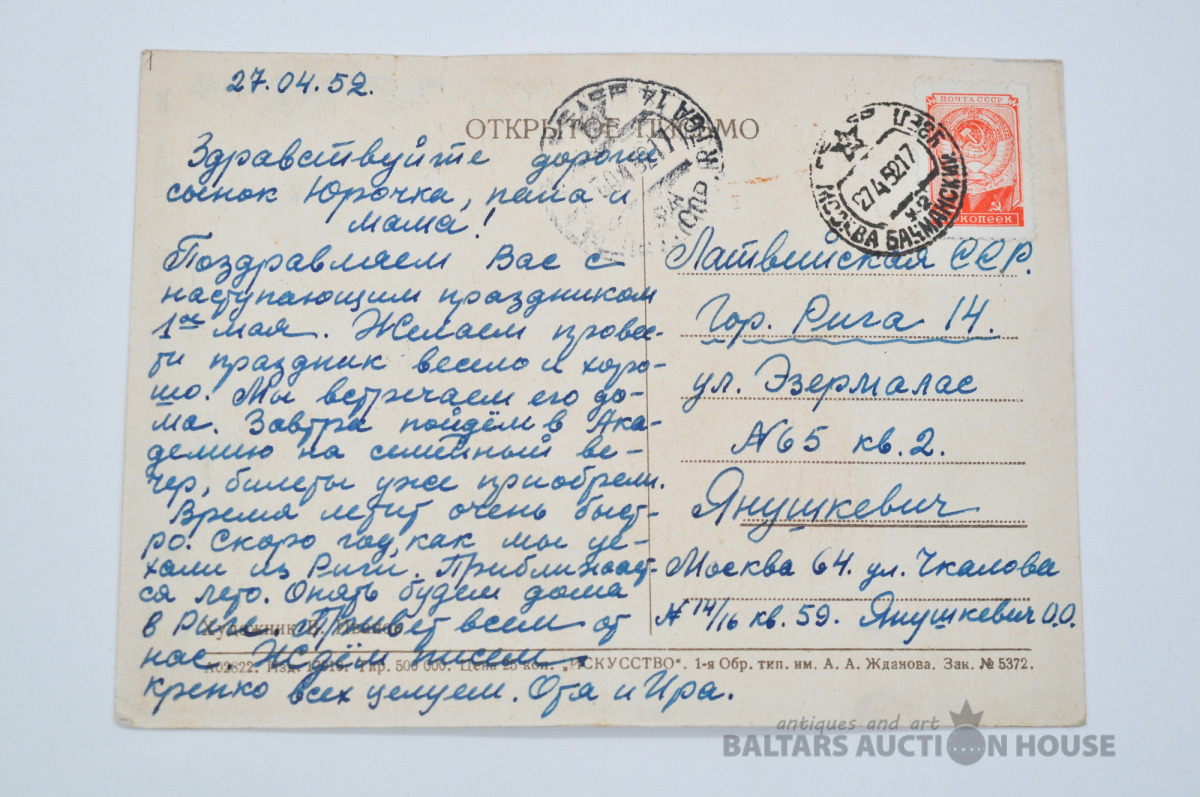 27.04.52.
ОТКРЫТОЕ ПИСЬМО
Здравствуйте дороги
сынок Юрочка, папа и
мама!
Поздравляем Вас с
наступающим праздником
1ое мая. Желаем прове-
ти праздник весело и хоро-
шо. Мы встречаем его до-
ма. Завтра пойдём в Ака-
демию на семейный ве-
чер, билеты уже приобрели.
Время летит очень быст-
ро. Скоро год, как мы уе-
хали из Риги. Приближает-
ся лето. Опять будем дома
в Риге. Привет всем от
нас. Ждём писем.
крепко всех целуем. Ота и Ира.
Художник
А02822. Изд. Тир. 500 000. Цена 25 коп. „ИСКУССТВО". 1-я Обр. тип. им. А. А. Жданова. Зак. № 5372.
РИГА 14
МОСКВА БАУМАНСКИЙ
27 4 52 17
ПОЧТА СССР
КОПЕЕК
Латвийская ССР.
Гор. Рига 14.
ул. Эзермалас
№65 кв. 2.
Янушкевич
Москва 64. ул. Чкалова
№ 14/16 кв. 59. Янушкевич О.О.
antiques and art
BALTARS AUCTION HOUSE